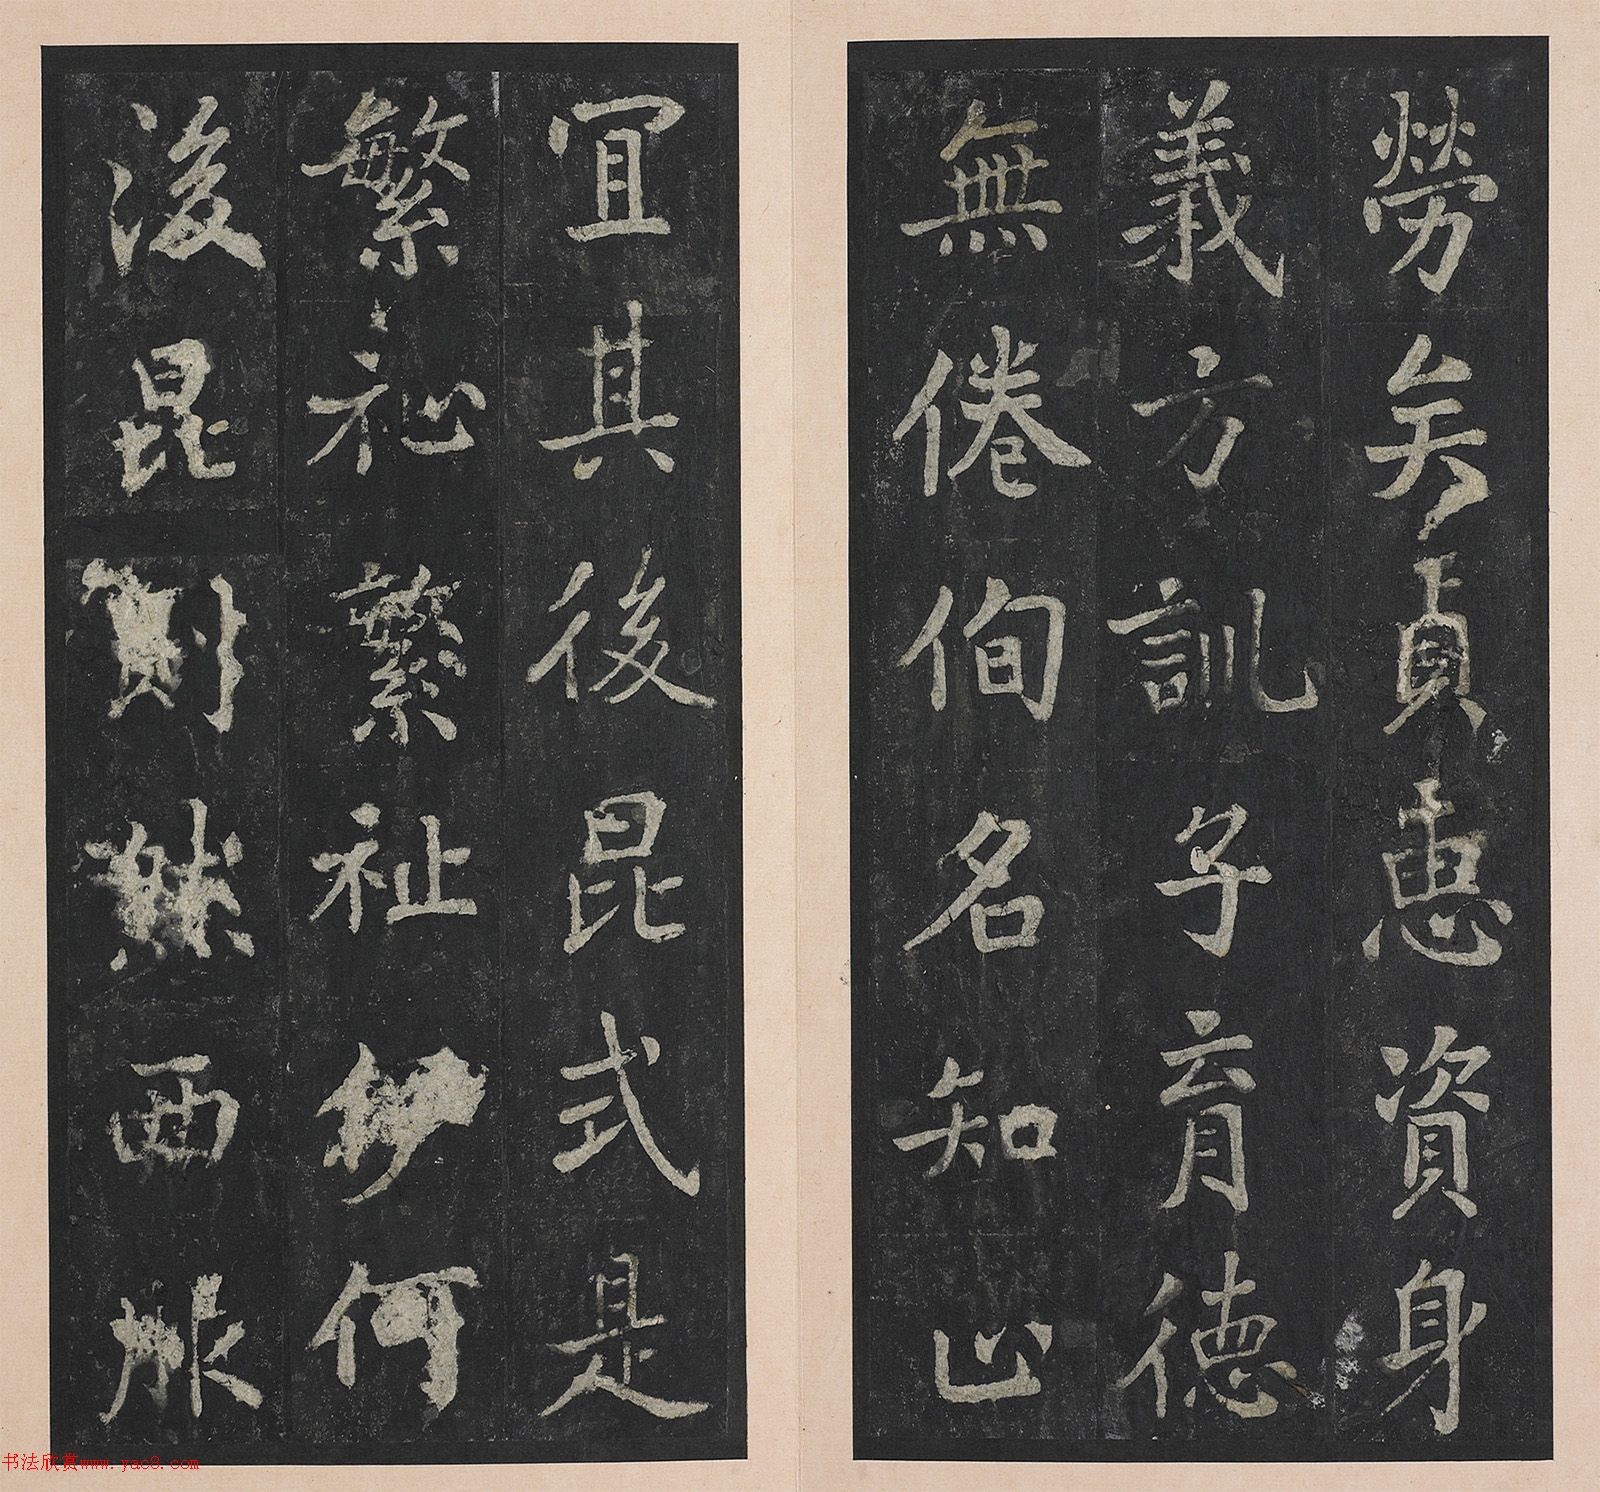 勞矣貞惠資身
義方訓子育德
無倦侚名知止
宜其後昆式是
繁祉繁祉紗何
後昆則然西脈
书法欣赏www.yac8.com